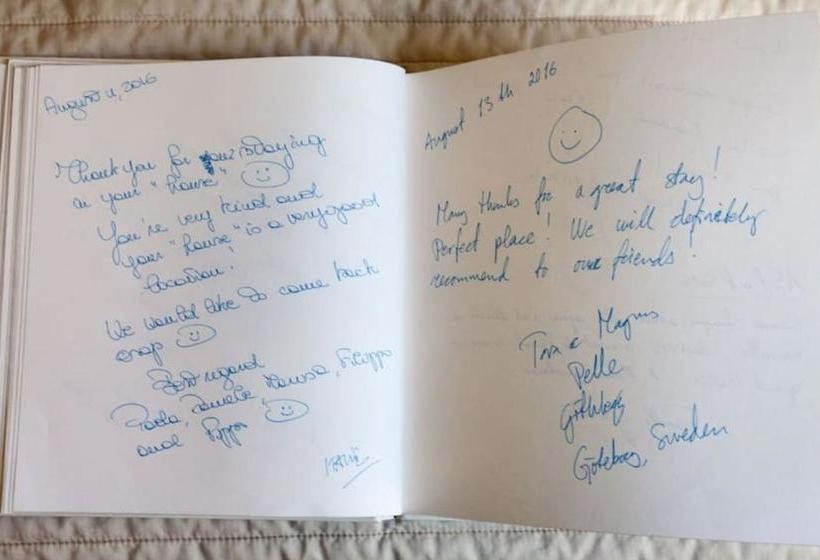 August 11, 2016
Thank you for your staying
in your "house"
You're very kind and
your "house" is a very good
location!
We would like to come back
Best regard
Paola, Daniele, Larissa, Filippo
and Pippo
August 13th 2016
Many thanks for a great stay!
Perfect place! We will definitely
recommend to our friends!
Magnus
Pelle
Göteborg, Sweden